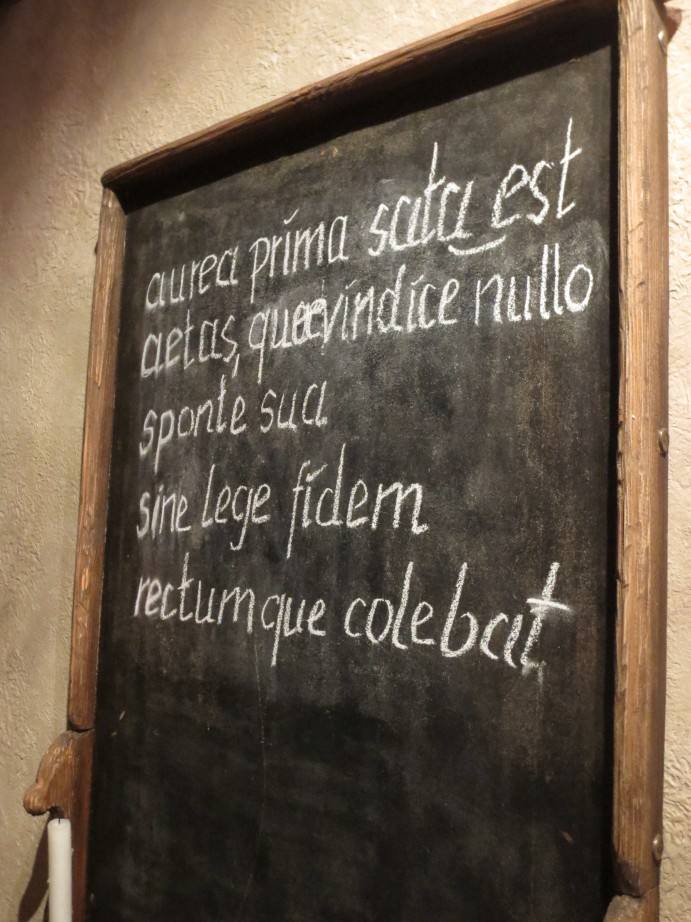 aurea prima sata est
aetas, quae vindice nullo
sponte sua
sine lege fidem
rectumque colebat